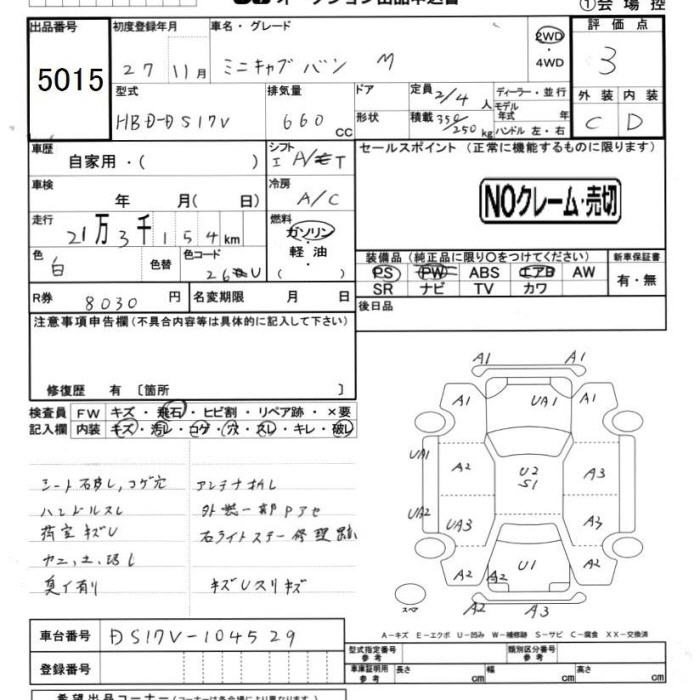 ①会場控
出品番号 初度登録年月 車名・グレード 2WD 評価点
5015 27 11月 ミニキャブバン M 4WD 3
型式 排気量 ドア 定員 2/4人 ディーラー・並行 外装 内装
モデル
HBD-DS17V 660 CC 形状 積載 350/250kg 年式 年 C D
ハンドル 左・右
車歴 シフト セールスポイント (正常に機能するものに限ります)
自家用・( ) I AT
車検 冷房
年 月( 日) A/C NOクレーム・売切
走行 燃料
21万3千154km ガソリン
色 色替 色コード 軽油 装備品 (純正品に限り○をつけてください) 新車保証書
白 26U ( ) PS PW ABS エアB AW 有・無
SR ナビ TV カワ
R券 8030円 名変期限 月 日 後日品
注意事項申告欄 (不具合内容等は具体的に記入して下さい)
修復歴 有 〔箇所 〕
検査員 FW キズ・飛石・ヒビ割・リペア跡・×要
記入欄 内装 キズ・汚レ・コゲ・穴・スレ・キレ・破レ
シート破レ,コゲ穴 アンテナ
ハンドルスレ 外装一部Pアセ
荷室キズU 右ライトステー修理跡
臭イ有り キズUスリキズ
A1 A1
A1 UA1 A1
UA1
A2 U2 A3
S1
UA2 UA3 A3
A2 A2 U1 A2
スペア A2 A3
A-キズ E-エクボ U-凹み W-補修跡 S-サビ C-腐食 XX-交換済
車台番号 DS17V-104529
型式指定番号 参考 類別区分番号 参考
登録番号 車庫証明用 参考 長さ cm 幅 cm 高さ cm